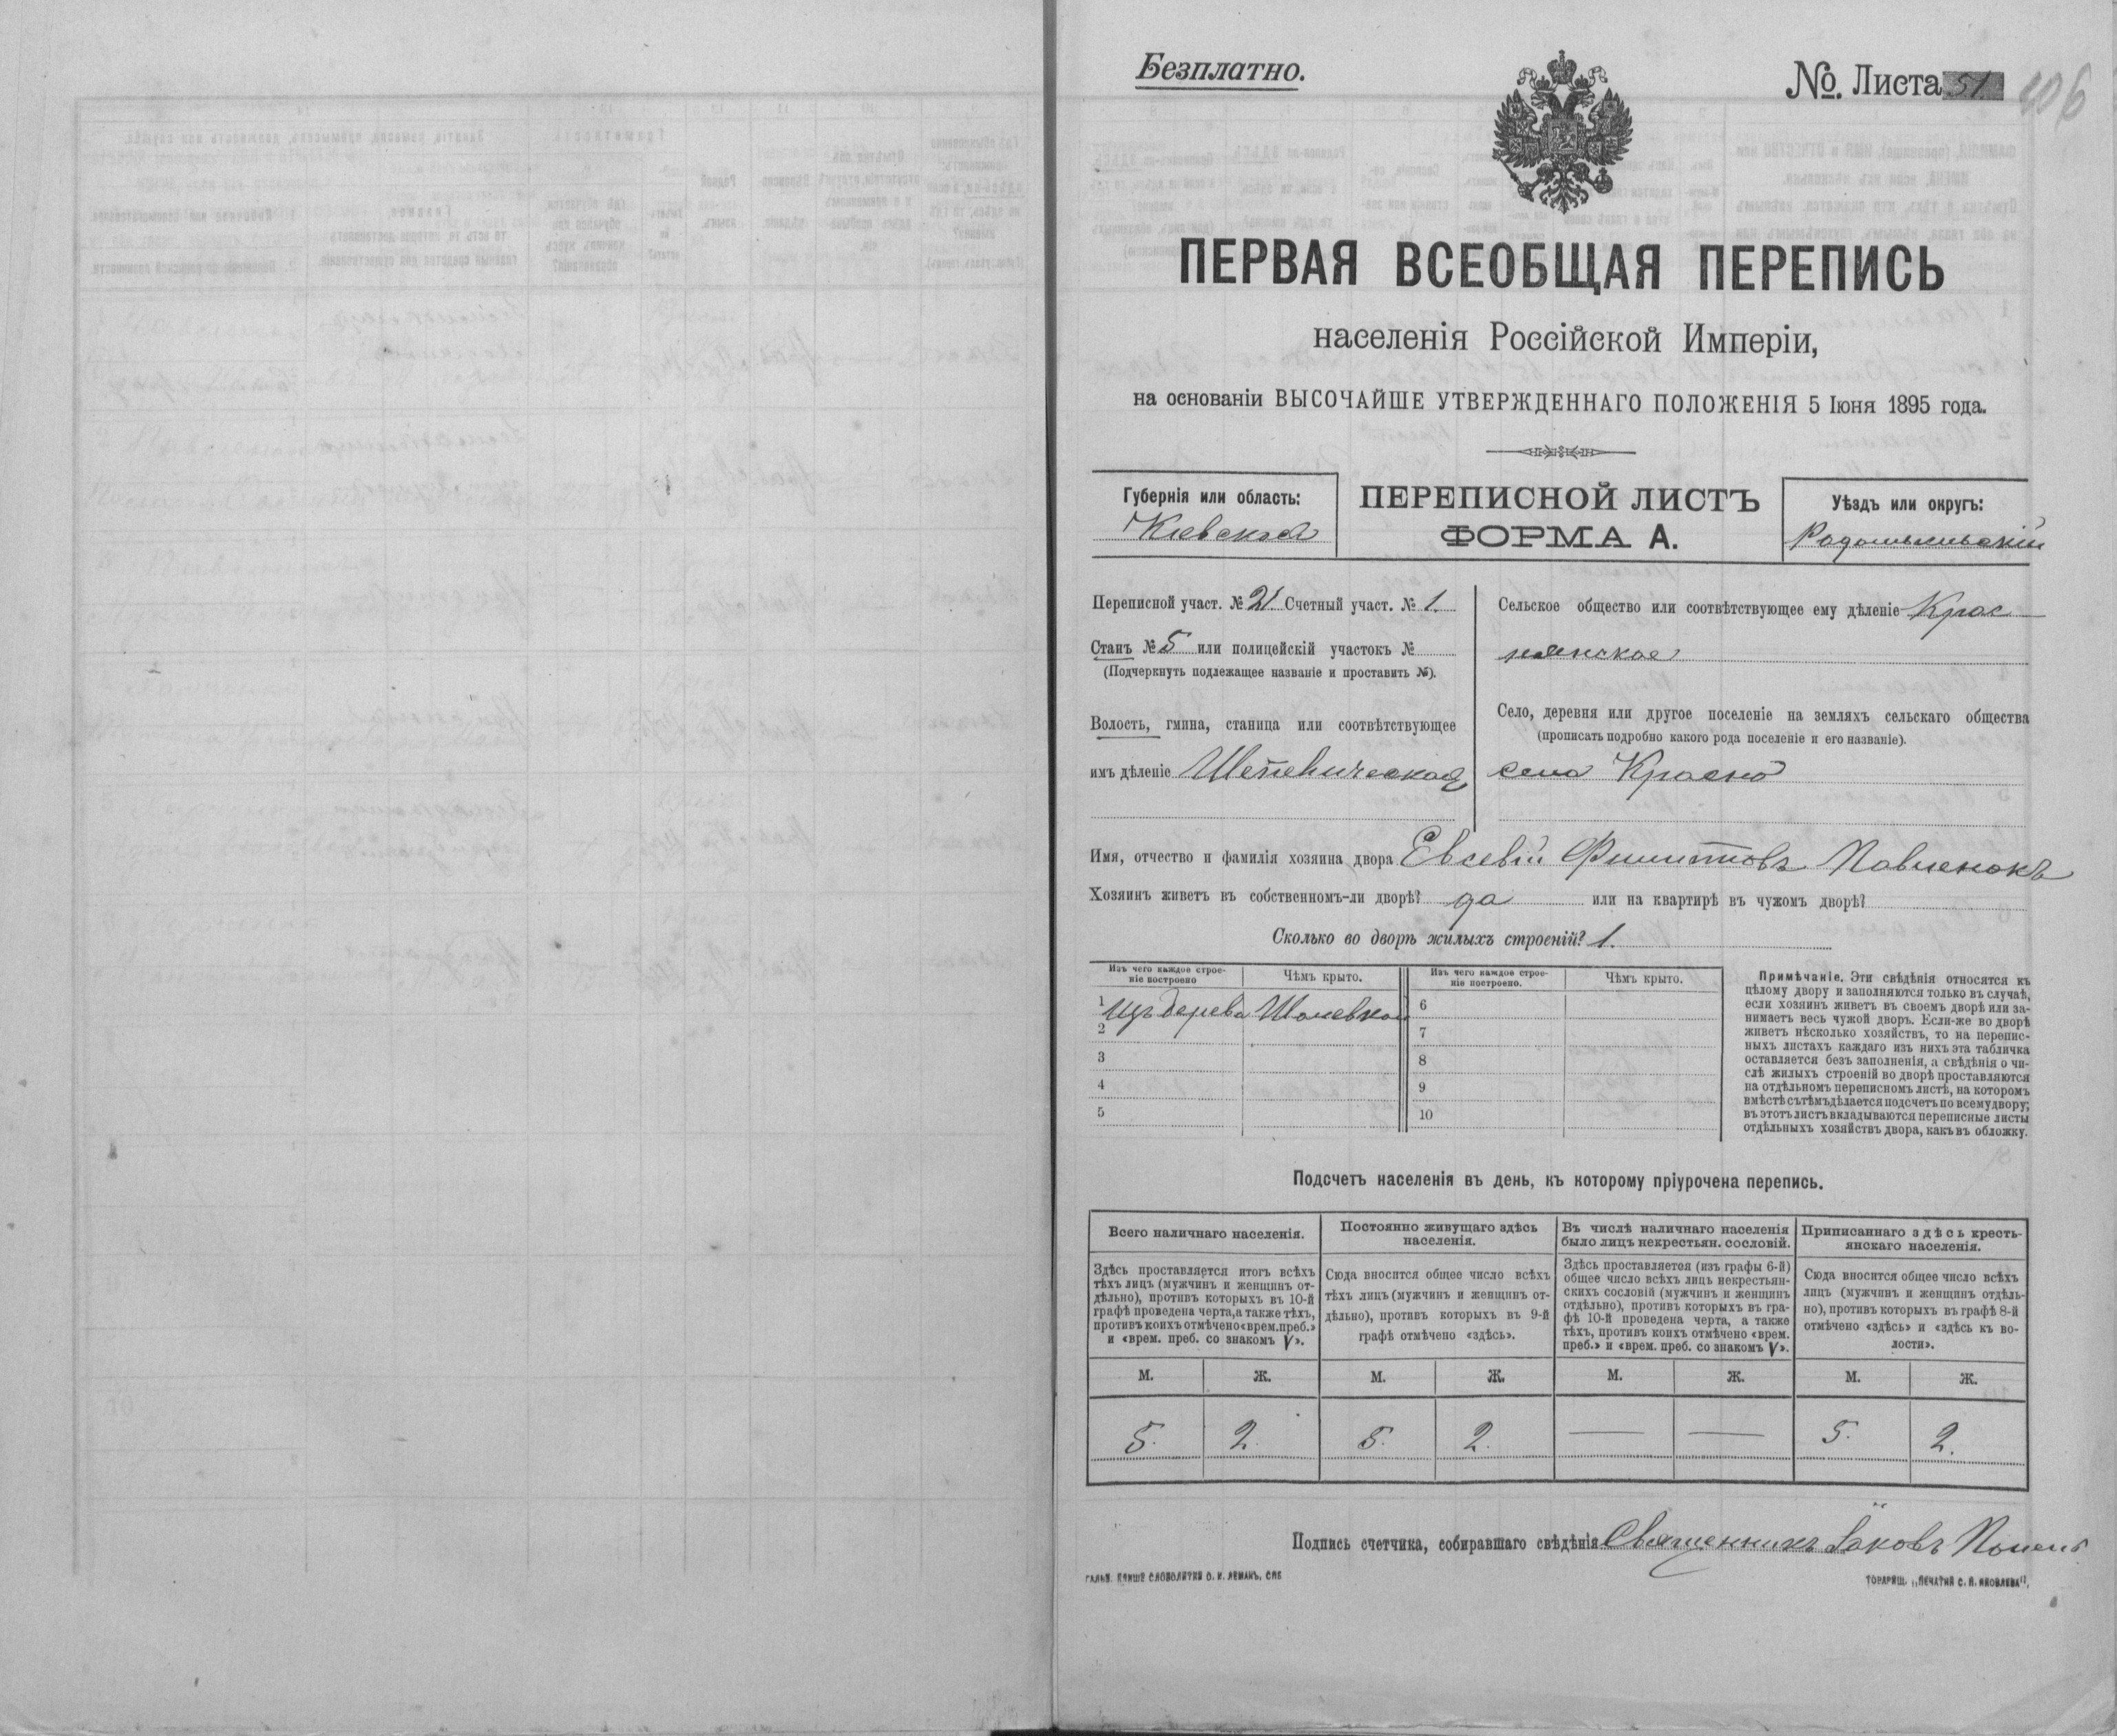 Безплатно.
№. Листа 51
106
ПЕРВАЯ ВСЕОБЩАЯ ПЕРЕПИСЬ
населенія Россійской Имперіи,
на основаніи ВЫСОЧАЙШЕ УТВЕРЖДЕННАГО ПОЛОЖЕНІЯ 5 Іюня 1895 года.
Губернія или область:
Кіевская
ПЕРЕПИСНОЙ ЛИСТЪ
ФОРМА А.
Уѣздъ или округъ:
Радомысльскій
Переписной участ. № 21 Счетный участ. № 1.
Станъ № 5 или полицейскій участокъ №
(Подчеркнуть подлежащее названіе и проставить №).
Волость, гмина, станица или соотвѣтствующее
имъ дѣленіе Шепеличская
Сельское общество или соотвѣтствующее ему дѣленіе Крас
нянское
Село, деревня или другое поселеніе на земляхъ сельскаго общества
(прописать подробно какого рода поселеніе и его названіе).
село Красно
Имя, отчество и фамилія хозяина двора Евсевій Филиповъ Павленокъ
Хозяинъ живетъ въ собственномъ-ли дворѣ? да или на квартирѣ въ чужомъ дворѣ?
Сколько во дворѣ жилыхъ строеній? 1.
Изъ чего каждое строе-
ніе построено
Чѣмъ крыто.
Изъ чего каждое строе-
ніе построено.
Чѣмъ крыто.
1 изъ дерева Шалевкой
2
3
4
5
6
7
8
9
10
Примѣчаніе. Эти свѣдѣнія относятся къ
цѣлому двору и заполняются только въ случаѣ,
если хозяинъ живетъ въ своемъ дворѣ или за-
нимаетъ весь чужой дворъ. Если-же во дворѣ
живетъ нѣсколько хозяйствъ, то на перепис-
ныхъ листахъ каждаго изъ нихъ эта табличка
оставляется безъ заполненія, а свѣдѣнія о чи-
слѣ жилыхъ строеній во дворѣ проставляются
на отдѣльномъ переписномъ листѣ, на которомъ
вмѣстѣ съ тѣмъ дѣлается подсчетъ по всему двору;
въ этотъ листъ вкладываются переписные листы
отдѣльныхъ хозяйствъ двора, какъ въ обложку.
Подсчетъ населенія въ день, къ которому пріурочена перепись.
Всего наличнаго населенія.
Здѣсь проставляется итогъ всѣхъ
тѣхъ лицъ (мужчинъ и женщинъ от-
дѣльно), противъ которыхъ въ 10-й
графѣ проведена черта, а также тѣхъ,
противъ коихъ отмѣчено «врем. преб.»
и «врем. преб. со знакомъ V».
Постоянно живущаго здѣсь
населенія.
Сюда вносится общее число всѣхъ
тѣхъ лицъ (мужчинъ и женщинъ от-
дѣльно), противъ которыхъ въ 9-й
графѣ отмѣчено «здѣсь».
Въ числѣ наличнаго населенія
было лицъ некрестьян. сословій.
Здѣсь проставляется (изъ графы 6-й)
общее число всѣхъ лицъ некрестьян-
скихъ сословій (мужчинъ и женщинъ
отдѣльно), противъ которыхъ въ гра-
фѣ 10-й проведена черта, а также
тѣхъ, противъ коихъ отмѣчено «врем.
преб.» и «врем. преб. со знакомъ V».
Приписаннаго здѣсь кресть-
янскаго населенія.
Сюда вносится общее число всѣхъ
лицъ (мужчинъ и женщинъ отдѣль-
но), противъ которыхъ въ графѣ 8-й
отмѣчено «здѣсь» и «здѣсь къ во-
лости».
М. Ж. М. Ж. М. Ж. М. Ж.
5. 2. 5. 2. — — 5. 2.
Подпись счетчика, собиравшаго свѣдѣнія Священникъ Іаковъ
ГАЛЬВ. КЛИШЕ СЛОВОЛИТНИ О. И. ЛЕМАНЪ, СПБ
ТОВАРИЩ. „ПЕЧАТНЯ С. П. ЯКОВЛЕВА“.